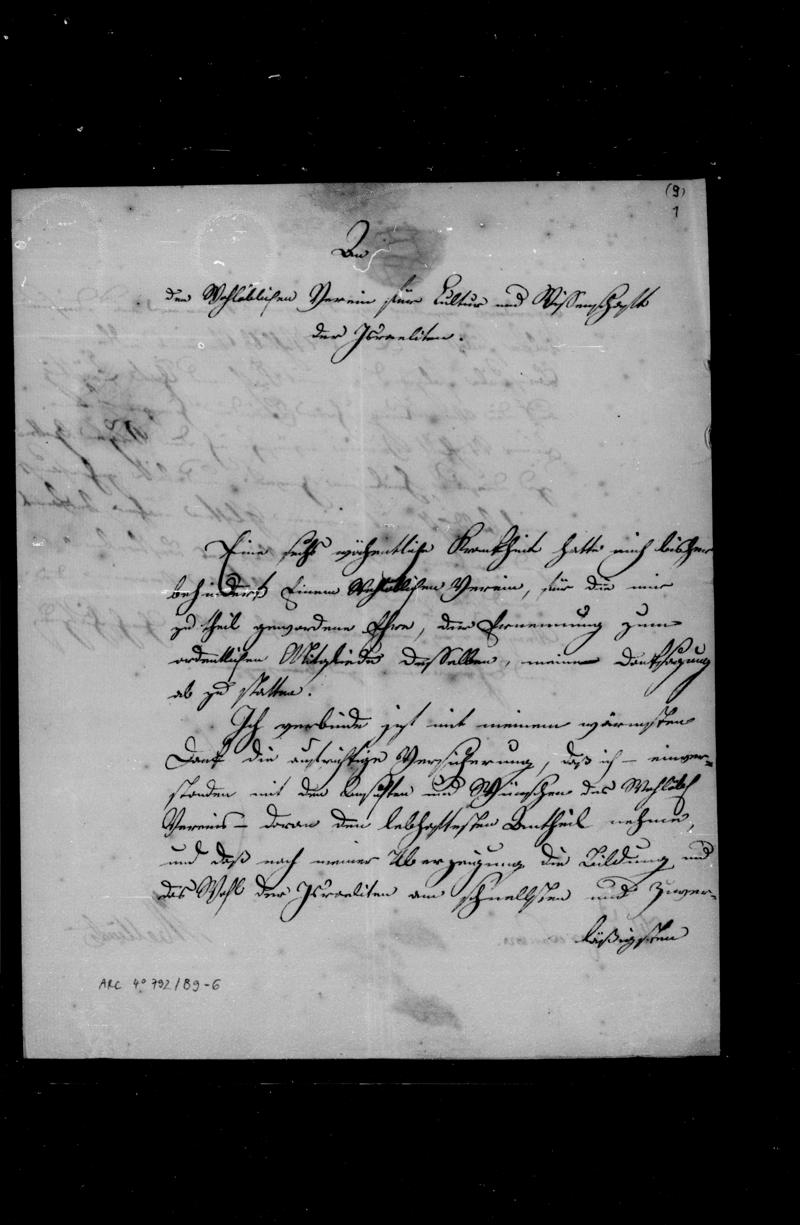 (9)
1
An
den Wohlöblichen Verein für Cultur und Wissenschaft
der Israeliten.
Eine sechs wöchentliche Krankheit hatte mich bisher
behindert Einem Wohlöblichen Verein, für die mir
zu theil gewordene Ehre, der Ernennung zum
ordentlichen Mitgliede desselben, meine Danksagung
ab zu statten.
Ich verbinde jetzt mit meinem wärmsten
Dank die aufrichtige Versicherung, daß ich – einver-
standen mit den Ansichten und Wünschen des Wohllöbl
Vereins – daran den lebhaftesten Antheil nehme,
und daß nach meiner Überzeugung die Bildung und
das Wohl der Israeliten am schnellsten und zuver-
läßigsten
ARC 4° 792/B9-6